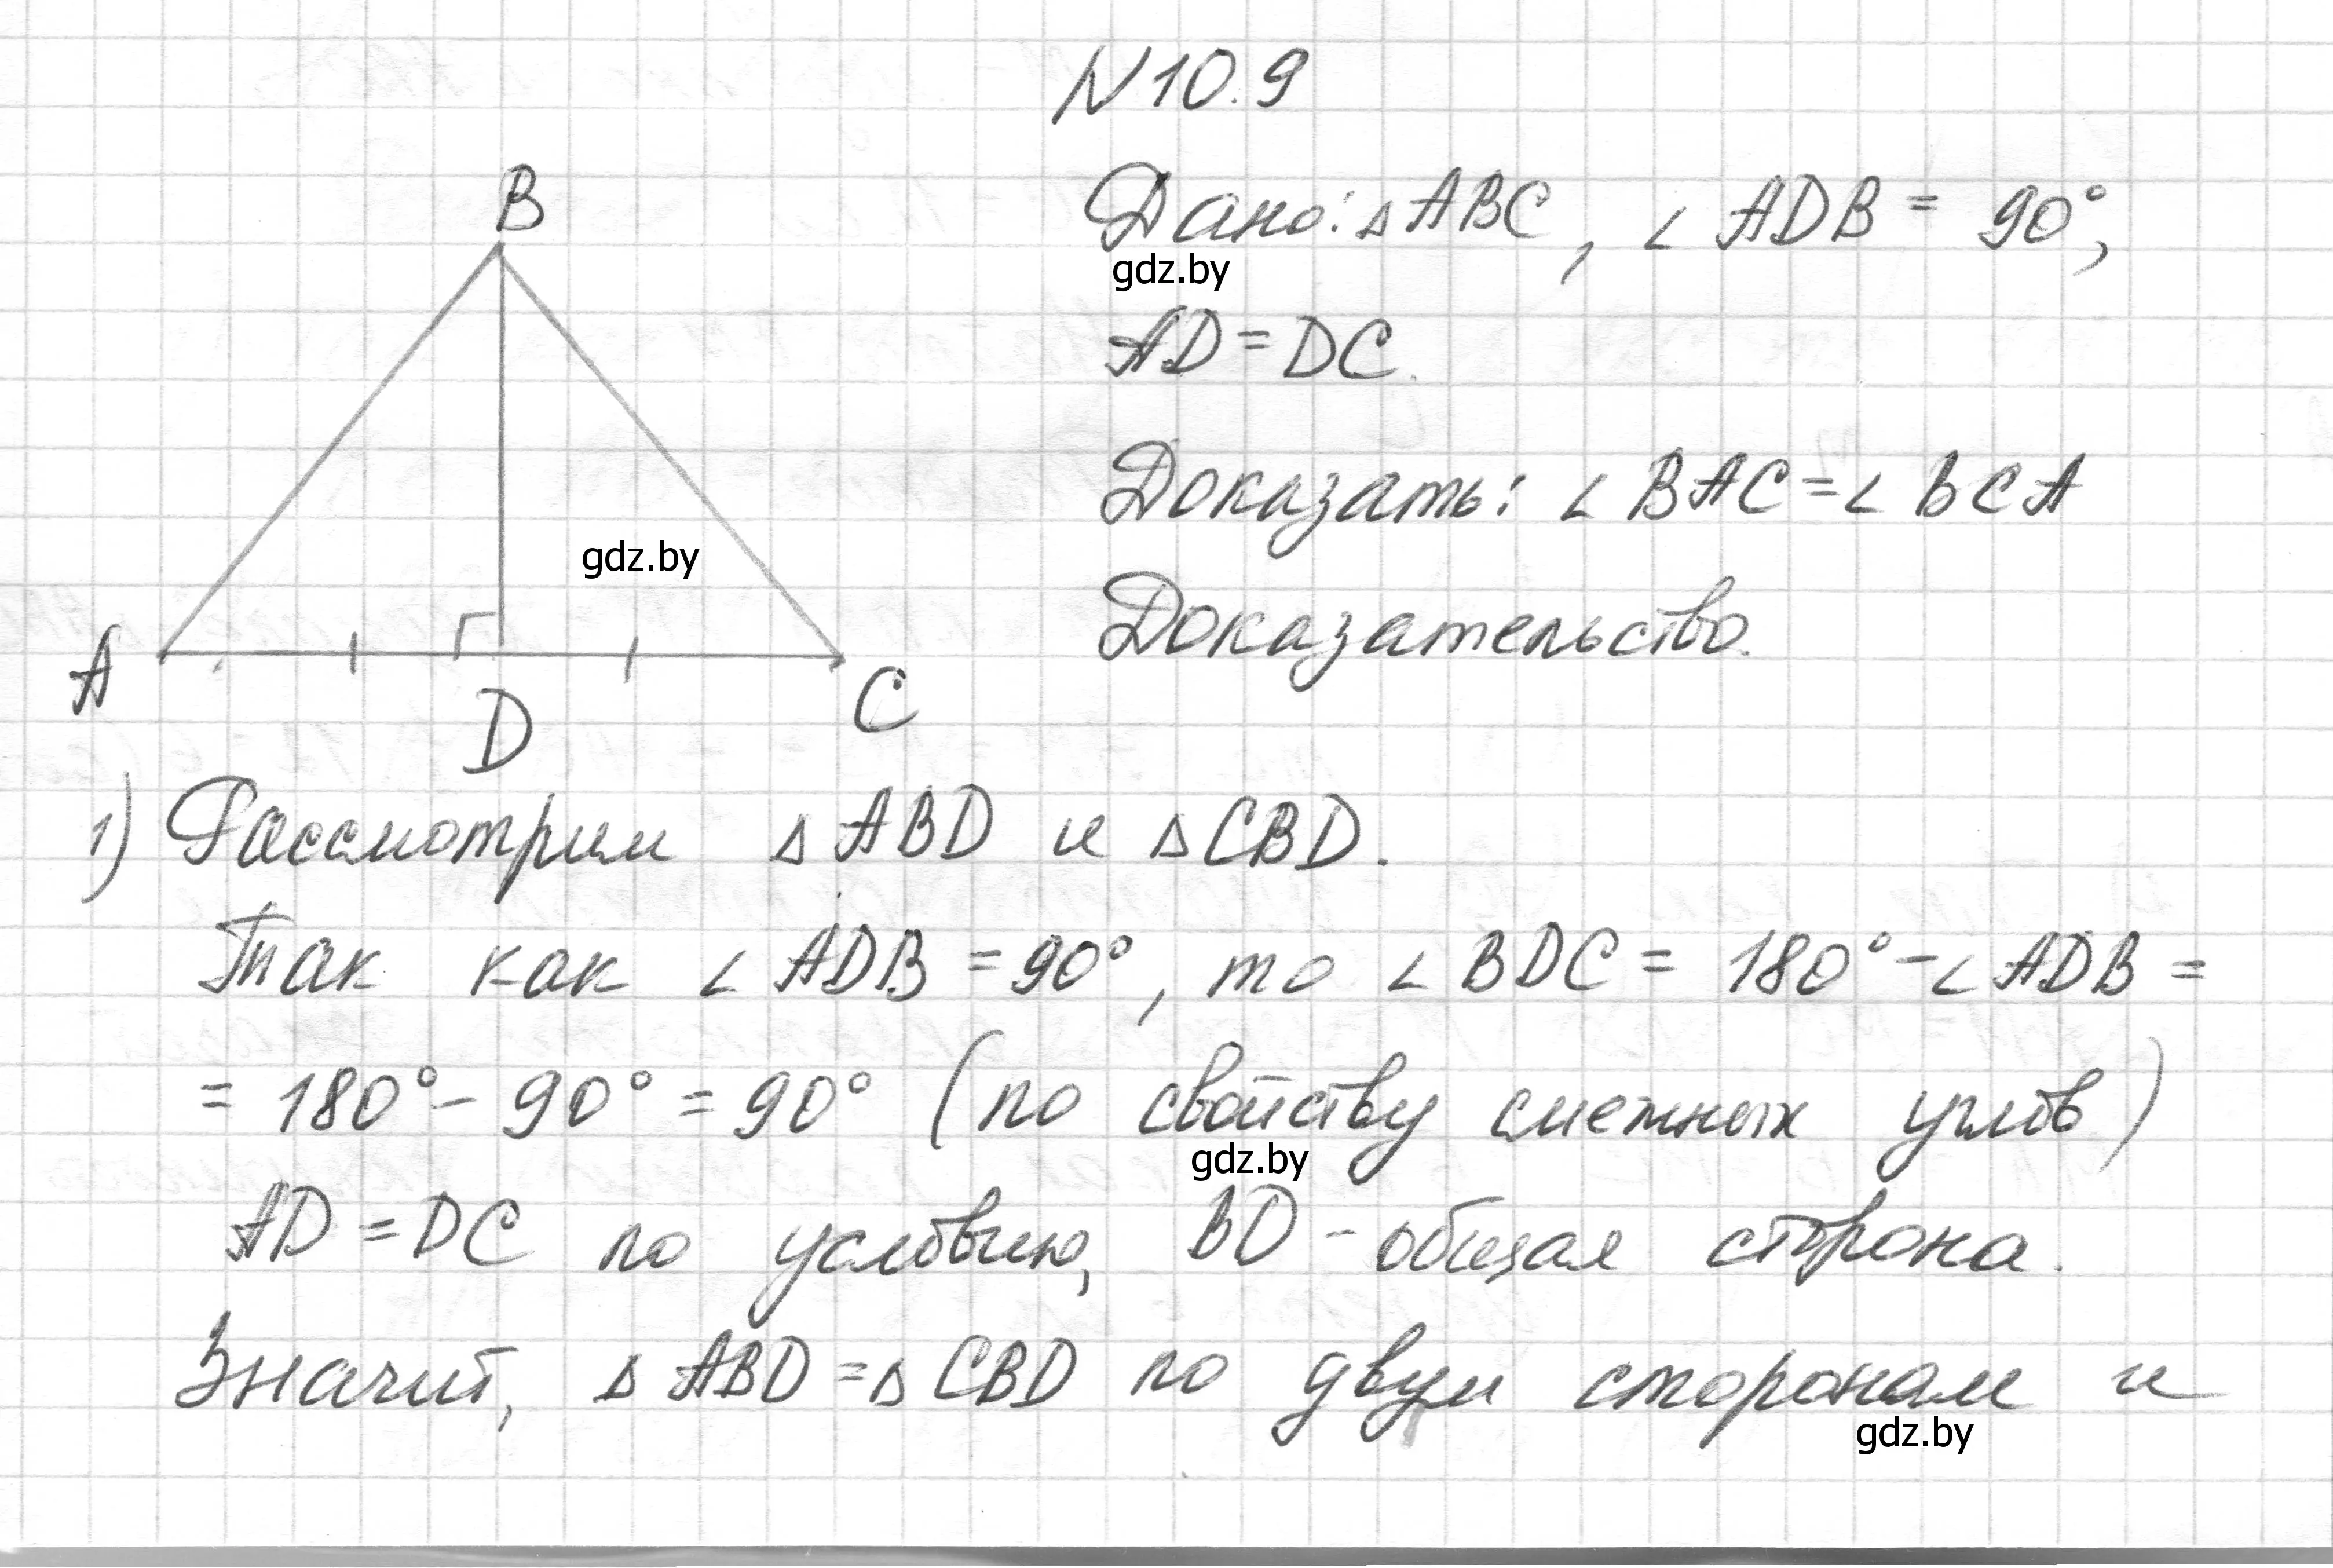 N 10.9
B
Дано: △ABC, ∠ADB = 90°,
gdz.by
AD = DC.
Доказать: ∠BAC = ∠BCA
gdz.by
Доказательство.
A
C
D
1) Рассмотрим △ABD и △CBD.
Так как ∠ADB = 90°, то ∠BDC = 180° - ∠ADB =
= 180° - 90° = 90° (по свойству смежных углов)
gdz.by
AD = DC по условию, BD - общая сторона.
Значит, △ABD = △CBD по двум сторонам и
gdz.by